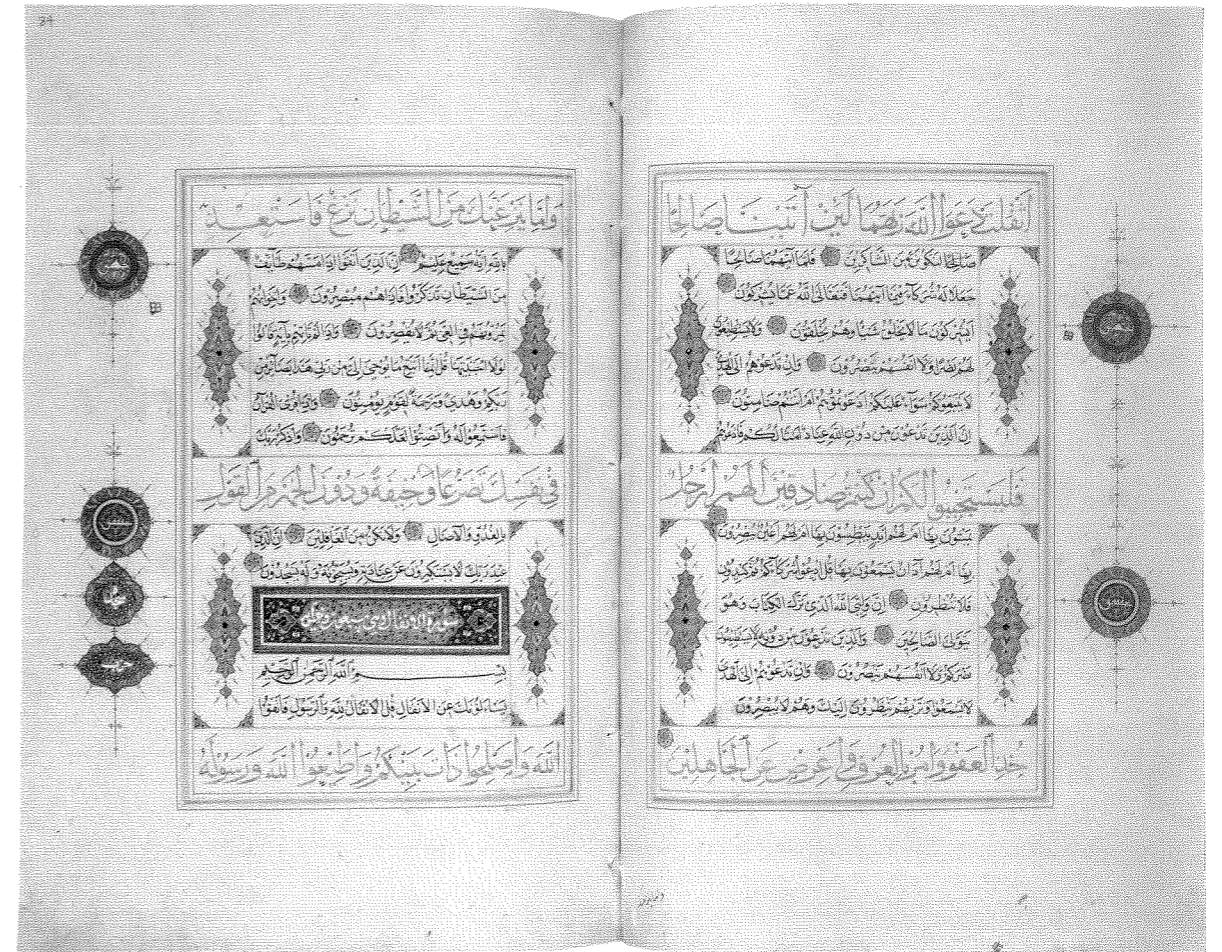 أثقلت دعوا الله ربهما لئن آتيتنا صالحا
صالحا لنكونن من الشاكرين فلما آتيهما صالحا
جعلا له شركاء فيما آتيهما فتعالى الله عما يشركون
أيشركون ما لا يخلق شيئا وهم يخلقون ولا يستطيعون
لهم نصرا ولا أنفسهم ينصرون وإن تدعوهم إلى الهدى
لا يتبعوكم سواء عليكم أدعوتموهم أم أنتم صامتون
إن الذين تدعون من دون الله عباد أمثالكم فادعوهم
فليستجيبوا لكم إن كنتم صادقين ألهم أرجل
يمشون بها أم لهم أيد يبطشون بها أم لهم أعين يبصرون
بها أم لهم آذان يسمعون بها قل ادعوا شركاءكم ثم كيدون
فلا تنظرون إن وليي الله الذي نزل الكتاب وهو
يتولى الصالحين والذين تدعون من دونه لا يستطيعون
نصركم ولا أنفسهم ينصرون وإن تدعوهم إلى الهدى
لا يسمعوا وتريهم ينظرون إليك وهم لا يبصرون
خذ العفو وأمر بالعرف وأعرض عن الجاهلين
وإما ينزغنك من الشيطان نزغ فاستعذ
بالله إنه سميع عليم إن الذين اتقوا إذا مسهم طائف
من الشيطان تذكروا فإذا هم مبصرون وإخوانهم
يمدونهم في الغي ثم لا يقصرون وإذا لم تأتهم بآية قالوا
لولا اجتبيتها قل إنما أتبع ما يوحى إلي من ربي هذا بصائر من
ربكم وهدى ورحمة لقوم يؤمنون وإذا قرئ القرآن
فاستمعوا له وأنصتوا لعلكم ترحمون واذكر ربك
في نفسك تضرعا وخيفة ودون الجهر من القول
بالغدو والآصال ولا تكن من الغافلين إن الذين
عند ربك لا يستكبرون عن عبادته ويسبحونه وله يسجدون
سورة الانفال
بسم الله الرحمن الرحيم
يسألونك عن الأنفال قل الأنفال لله والرسول فاتقوا
الله وأصلحوا ذات بينكم وأطيعوا الله ورسوله
حزب